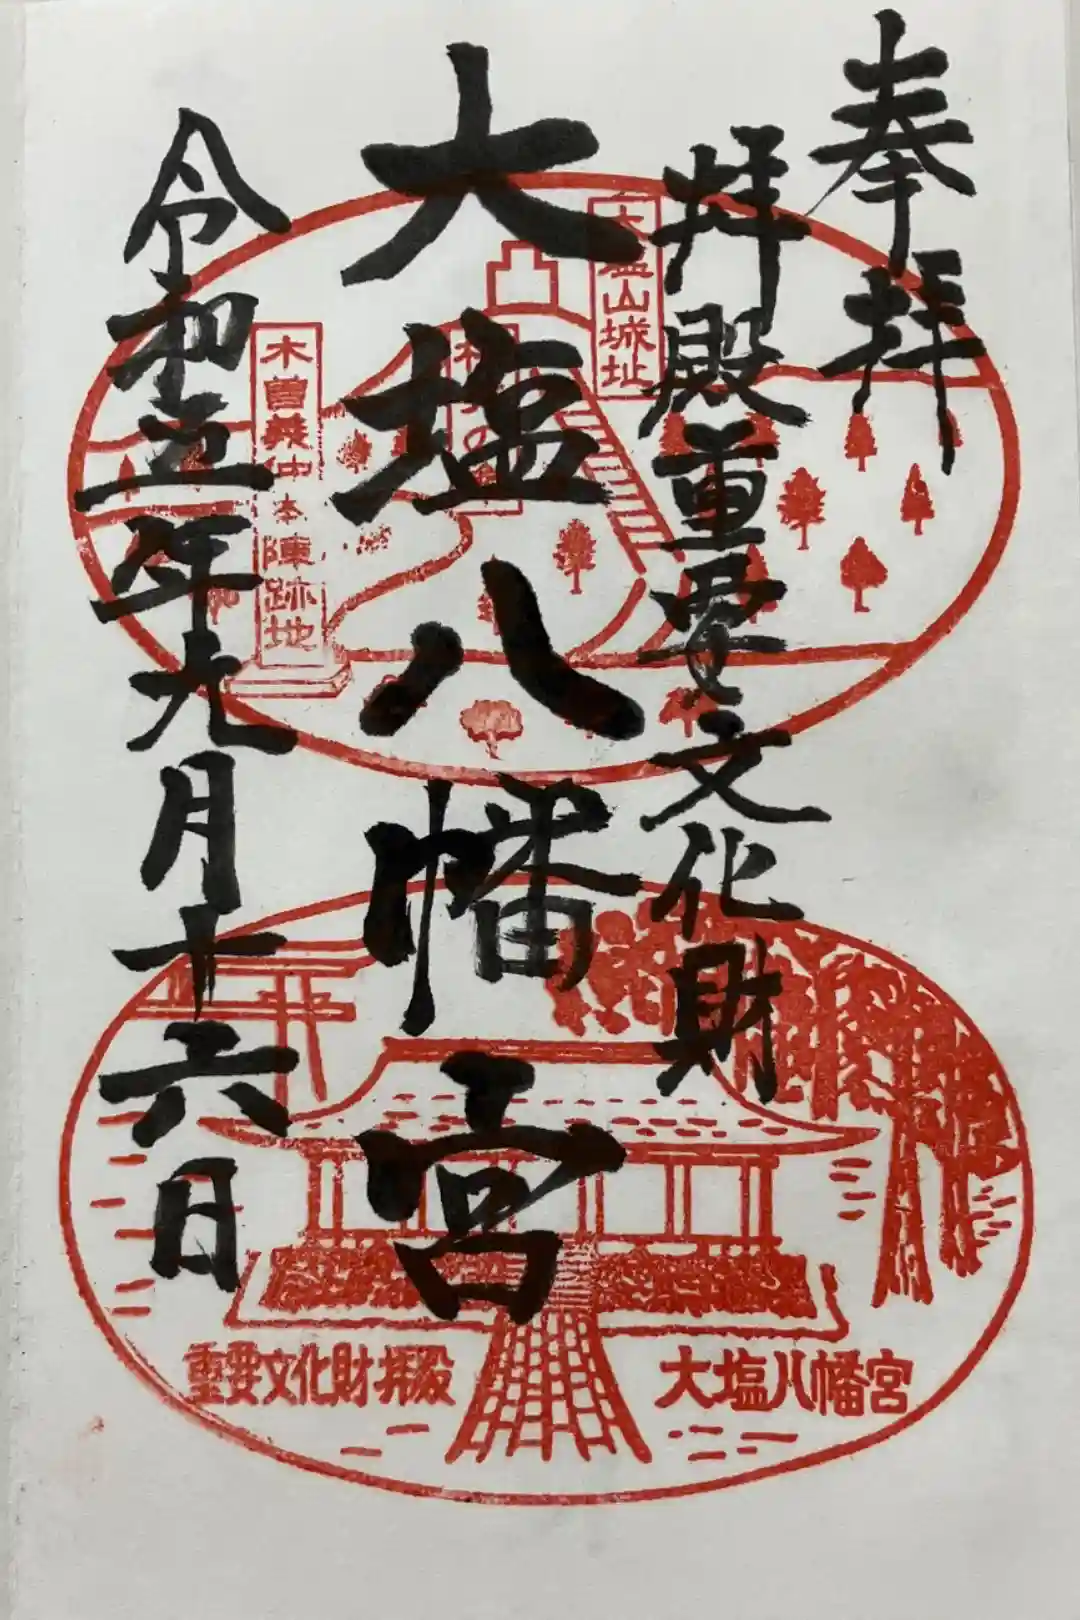 奉拝
拝殿重要文化財
大塩八幡宮
令和五年九月十六日
大塩山城址
木曽義仲本陣跡地
重要文化財拝殿
大塩八幡宮